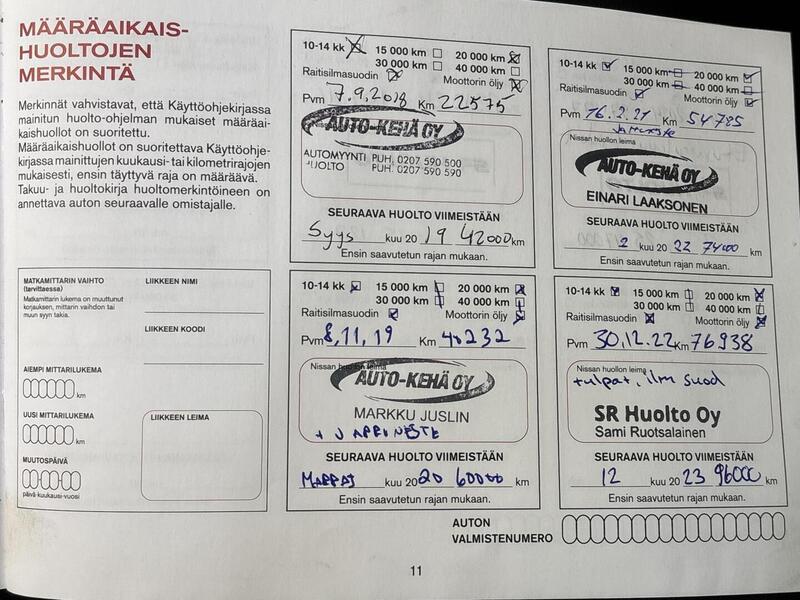 MÄÄRÄAIKAIS-
HUOLTOJEN
MERKINTÄ
Merkinnät vahvistavat, että Käyttöohjekirjassa
mainitun huolto-ohjelman mukaiset määräai-
kaishuollot on suoritettu.
Määräaikaishuollot on suoritettava Käyttöohje-
kirjassa mainittujen kuukausi- tai kilometrirajojen
mukaisesti, ensin täyttyvä raja on määräävä.
Takuu- ja huoltokirja huoltomerkintöineen on
annettava auton seuraavalle omistajalle.
MATKAMITTARIN VAIHTO
(tarvittaessa)
Matkamittarin lukema on muuttunut
korjauksen, mittarin vaihdon tai
muun syyn takia.
AIEMPI MITTARILUKEMA
km
UUSI MITTARILUKEMA
km
MUUTOSPÄIVÄ
päivä-kuukausi-vuosi
LIIKKEEN NIMI
LIIKKEEN KOODI
LIIKKEEN LEIMA
10-14 kk 15 000 km 20 000 km
30 000 km 40 000 km
Raitisilmasuodin Moottorin öljy
Pvm 7.9.2018 Km 22575
AUTO-KEHÄ OY
AUTOMYYNTI PUH. 0207 590 500
HUOLTO PUH. 0207 590 590
SEURAAVA HUOLTO VIIMEISTÄÄN
Syys kuu 20 19 42000 km
Ensin saavutetun rajan mukaan.
10-14 kk 15 000 km 20 000 km
30 000 km 40 000 km
Raitisilmasuodin Moottorin öljy
Pvm 16.2.21 Km 54785
Nissan huollon leima
AUTO-KEHÄ OY
EINARI LAAKSONEN
SEURAAVA HUOLTO VIIMEISTÄÄN
2 kuu 20 22 74000 km
Ensin saavutetun rajan mukaan.
10-14 kk 15 000 km 20 000 km
30 000 km 40 000 km
Raitisilmasuodin Moottorin öljy
Pvm 8,11,19 Km 40232
Nissan huollon leima
AUTO-KEHÄ OY
MARKKU JUSLIN
+ JARRUNESTE
SEURAAVA HUOLTO VIIMEISTÄÄN
MARRAS kuu 20 20 60000 km
Ensin saavutetun rajan mukaan.
10-14 kk 15 000 km 20 000 km
30 000 km 40 000 km
Raitisilmasuodin Moottorin öljy
Pvm 30.12.22 Km 76938
Nissan huollon leima
+tulpat, ilm suod
SR Huolto Oy
Sami Ruotsalainen
SEURAAVA HUOLTO VIIMEISTÄÄN
12 kuu 20 23 96000 km
Ensin saavutetun rajan mukaan.
AUTON
VALMISTENUMERO
11